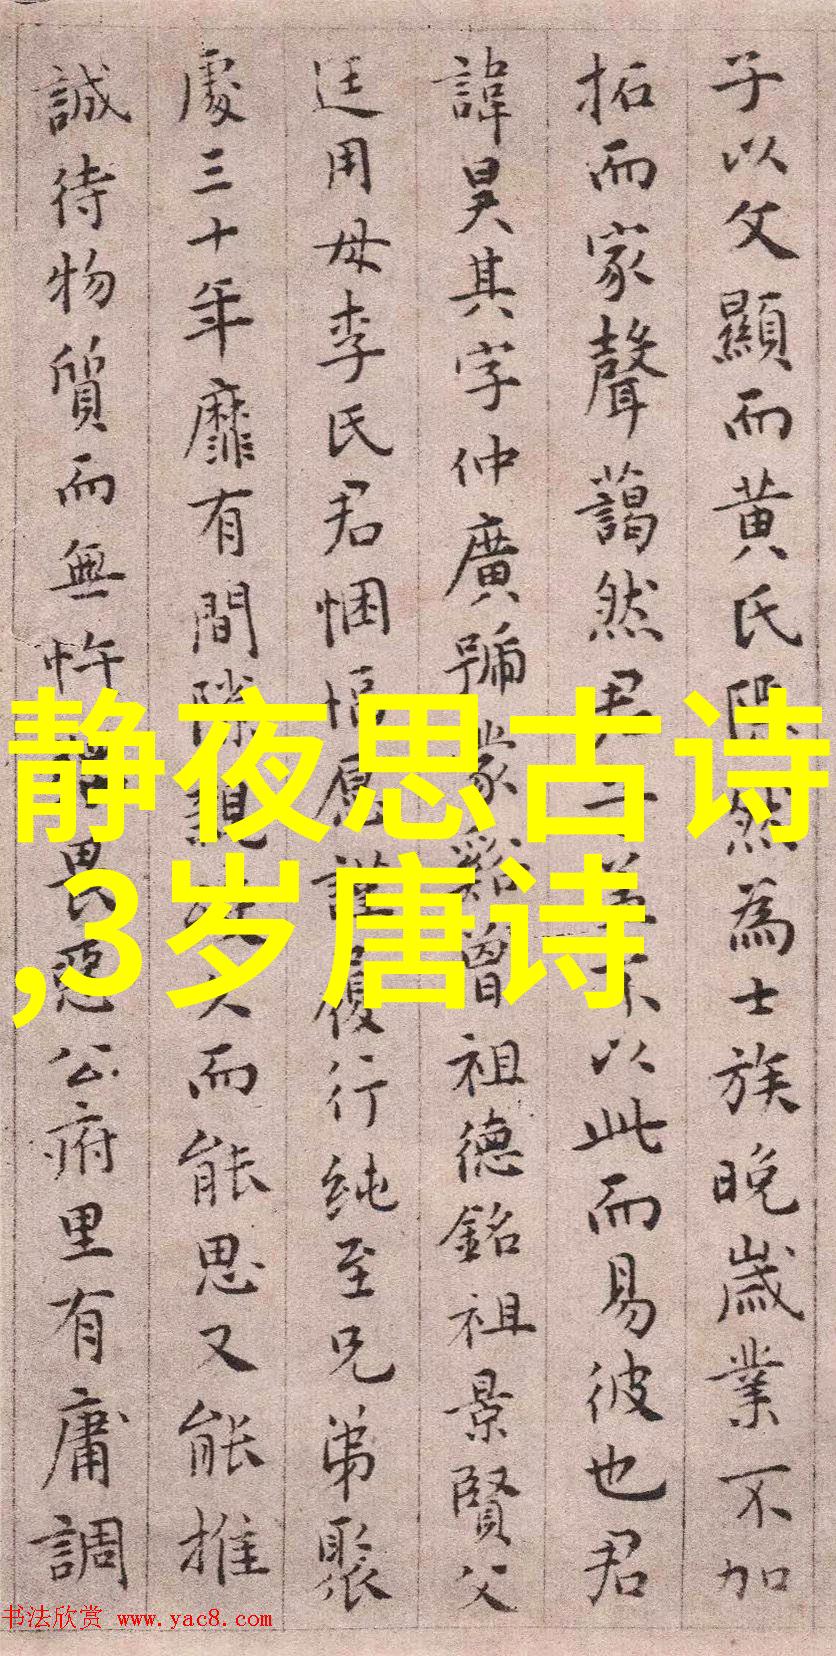 子以父顯而黃氏隱然為士族晚歲業不加
拓而家聲藹然君子蓋不以此而易彼也君
諱昊其字仲廣號蒙谿曾祖德銘祖景賢父
廷用母李氏君悃愊愿謹履行純至兄弟聚
處三十年靡有間隙親故久而能思又能推
誠待物質而無忤畏惡公府里有庸調
静夜思古诗
,3岁唐诗
书法欣赏 www.yac8.com